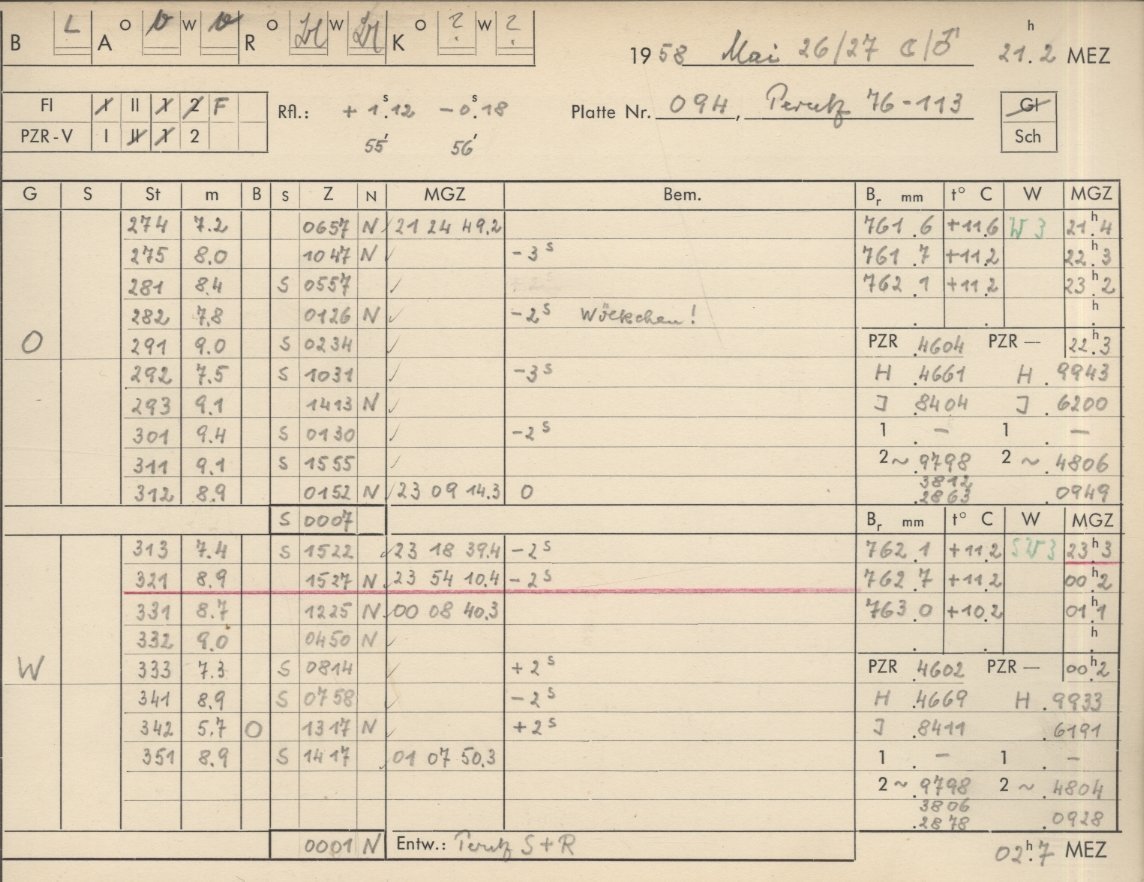 B L A O W R O W K O ? W ?
1958 Mai 26/27 ☾/♂ 21.ʰ2 MEZ
FI I II 1 2 F Rfl.: +1ˢ.12 -0ˢ.18 Platte Nr. 094, Perutz 76-113 Gl
PZR-V I II 1 2 55' 56' Sch
G S St m B S Z N MGZ Bem. Bᵣ mm t° C W MGZ
274 7.2 0657 N ✓ 21 24 49.2 761.6 +11.6 W 3 21.ʰ4
275 8.0 1047 N ✓ -3ˢ 761.7 +11.2 22.ʰ3
281 8.4 S 0557 ✓ 762.1 +11.2 23.ʰ2
282 7.8 0126 N ✓ -2ˢ Wölkchen! . . .ʰ
O 291 9.0 S 0234 ✓ PZR .4604 PZR — 22.ʰ3
292 7.5 S 1031 ✓ -3ˢ H .4661 H .9943
293 9.1 1413 N ✓ J .8404 J .6200
301 9.4 S 0130 ✓ -2ˢ 1 . – 1 . –
311 9.1 S 1555 ✓ 2 ~ .9798 2 ~ .4806
3812
312 8.9 0152 N 23 09 14.3 0 .2863 .0949
S 0007 Bᵣ mm t° C W MGZ
313 7.4 S 1522 ✓ 23 18 39.4 -2ˢ 762.1 +11.2 SW3 23.ʰ3
321 8.9 1527 N 23 54 10.4 -2ˢ 762.7 +11.2 00.ʰ2
331 8.7 1225 N 00 08 40.3 763.0 +10.2 01.ʰ1
332 9.0 0450 N ✓ . . .ʰ
W 333 7.3 S 0814 ✓ +2ˢ PZR .4602 PZR — 00.ʰ2
341 8.9 S 0758 ✓ -2ˢ H .4669 H .9933
342 5.7 O 1317 N ✓ +2ˢ J .8411 .6191
351 8.9 S 1417 01 07 50.3 1 . – 1 . –
2 ~ .9798 2 ~ .4804
3806
.2878 .0928
0001 N Entw.: Perutz S+R 02.ʰ7 MEZ